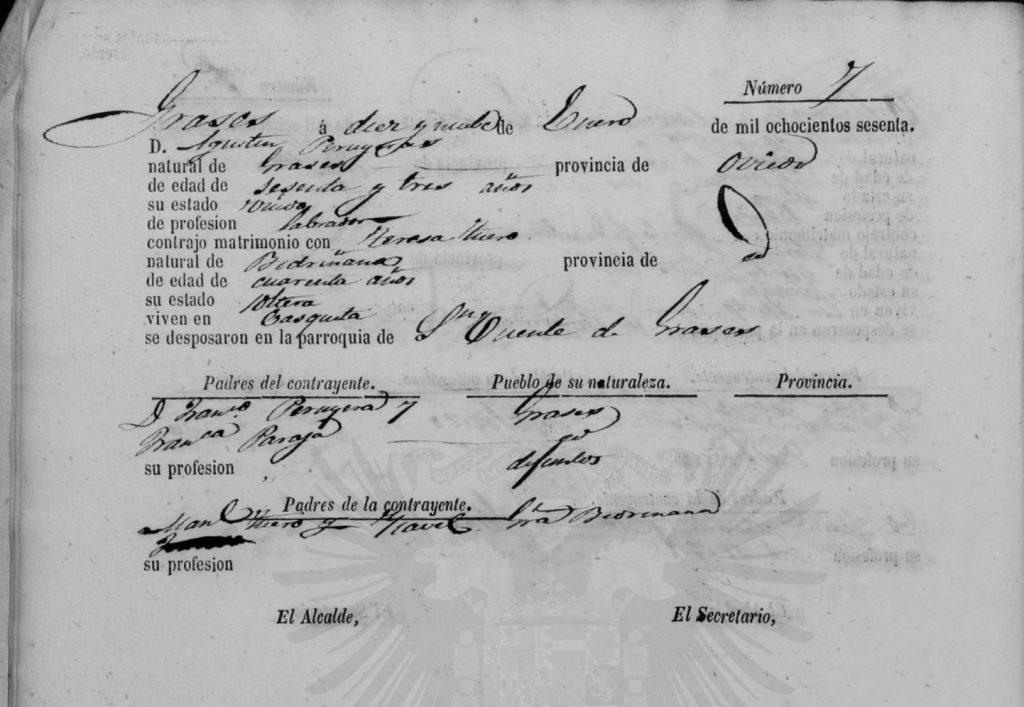 Número 7
Grases á diez y nuebe de Enero de mil ochocientos sesenta.
D. Agustin Peruyera
natural de Grases provincia de Oviedo
de edad de sesenta y tres años
su estado Viudo
de profesion labrador
contrajo matrimonio con Teresa
natural de Bedriñana provincia de id
de edad de cuarenta años
su estado soltera
viven en
se desposaron en la parroquia de Sn Vicente de Grases
Padres del contrayente. Pueblo de su naturaleza. Provincia.
D Franco Peruyera y Grases
Franca Paraja id
su profesion difuntos
Padres de la contrayente.
Manl y Bedriñana
su profesion
El Alcalde, El Secretario,